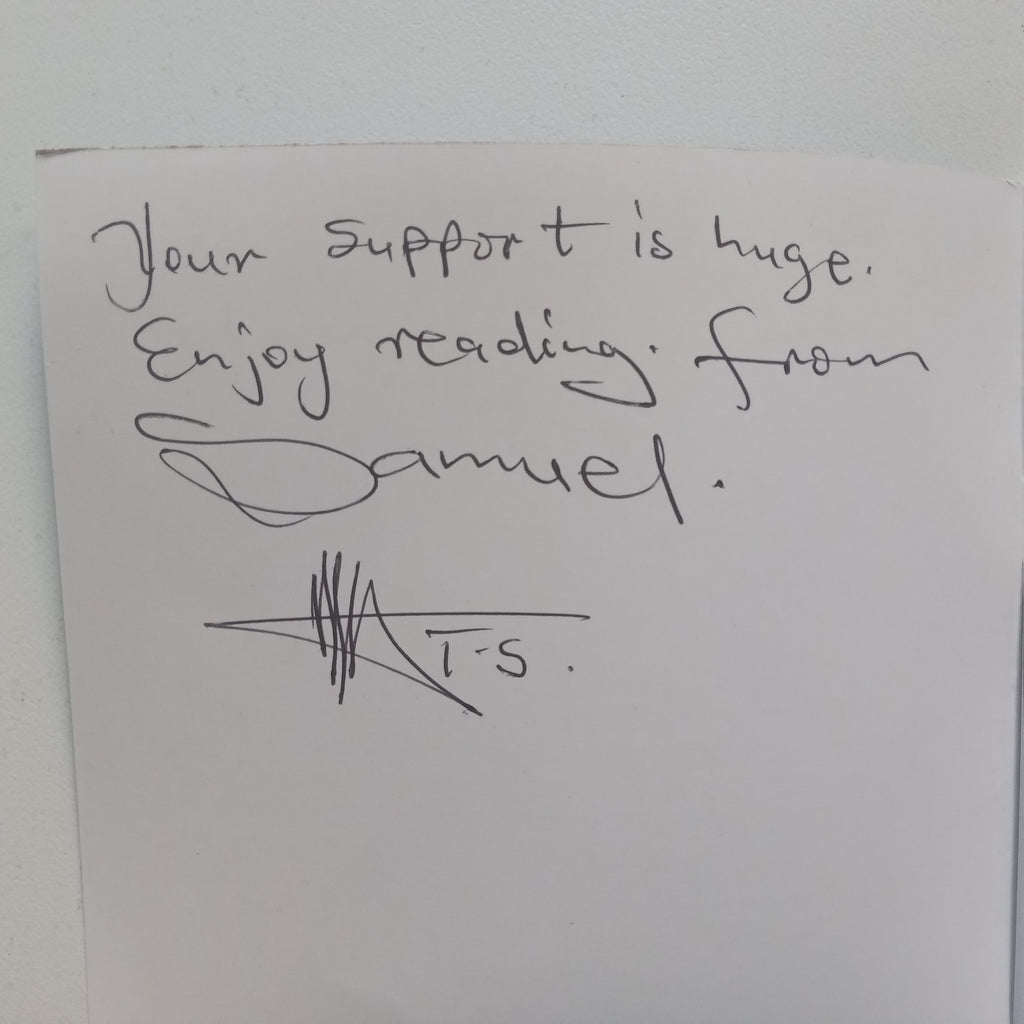 Your support is huge.
Enjoy reading. from
Samuel.
T-S.